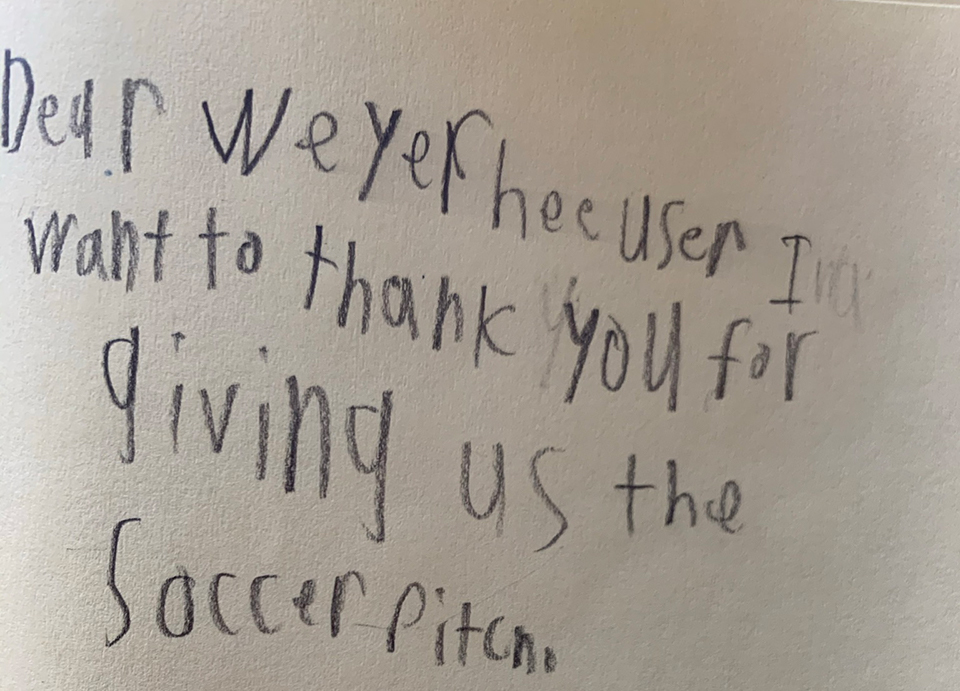 Dear Weyerheeuser I
want to thank you for
giving us the
Soccer pitch.